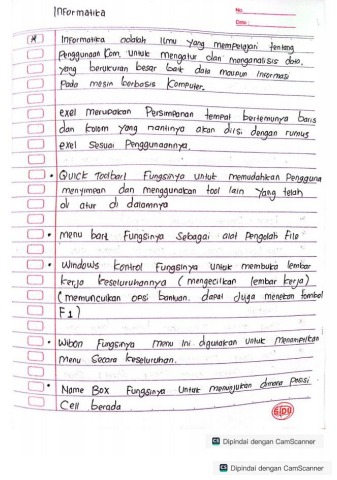 INFormatika
No.
Date:
Informatika adalah Ilmu yang mempelajari tentang
Penggunaan Kom. Untuk mengatur dan menganalisis data.
yang berukuran besar baik data maupun Informasi
Pada mesin berbasis Komputer.
exel merupakan Persimpanan tempat bertemunya baris
dan kolom yang nantinya akan diisi dengan rumus
exel Sesuai Penggunaannya.
• QUICK Toolbart Fungsinya Untuk memudahkan Pengguna
menyimpan dan menggunakan tool lain yang telah
di atur di dalamnya
• menu bart Fungsinya Sebagai alat Pengolah File
• Windows Kontrol Fungsinya Untuk membuka lembar
kerja keseluruhannya (mengecilkan lembar kerja)
(memunculkan opsi bantuan. dapat Juga menekan tombol
F1)
• Wibon Fungsinya menu Ini digunakan Untuk menampilkan
menu Secara keseluruhan.
• Name Box Fungsinya Untuk menunjukan dimana Posisi
Cell berada
SiDU
CS Dipindai dengan CamScanner
CS Dipindai dengan CamScanner